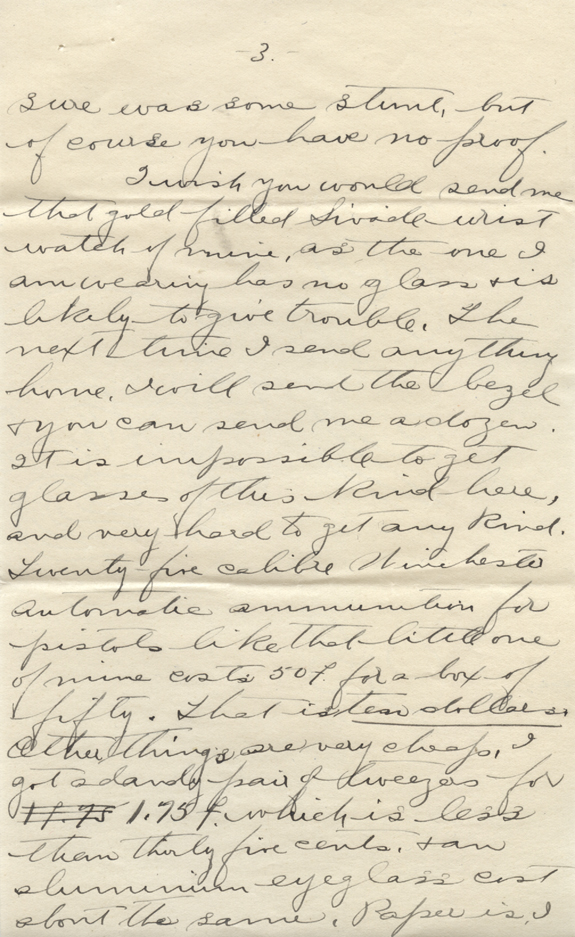 -3.-
sure was some stunt, but
of course you have no proof.
I wish you would send me
that gold filled wrist
watch of mine, as the one I
am wearing has no glass & is
likely to give trouble. The
next time I send anything
home, I will send the bezel
& you can send me a dozen.
It is impossible to get
glasses of this kind here,
and very hard to get any kind.
Twenty-five calibre Winchester
automatic ammunition for
pistols like that little one
of mine costs 50f. for a box of
fifty. That is ten dollars.
Other things are very cheap, I
got a dandy pair of tweezers for
11.75 1.75 f. which is less
than thirty five cents. & an
aluminium eyeglass cost
about the same. Paper is, I